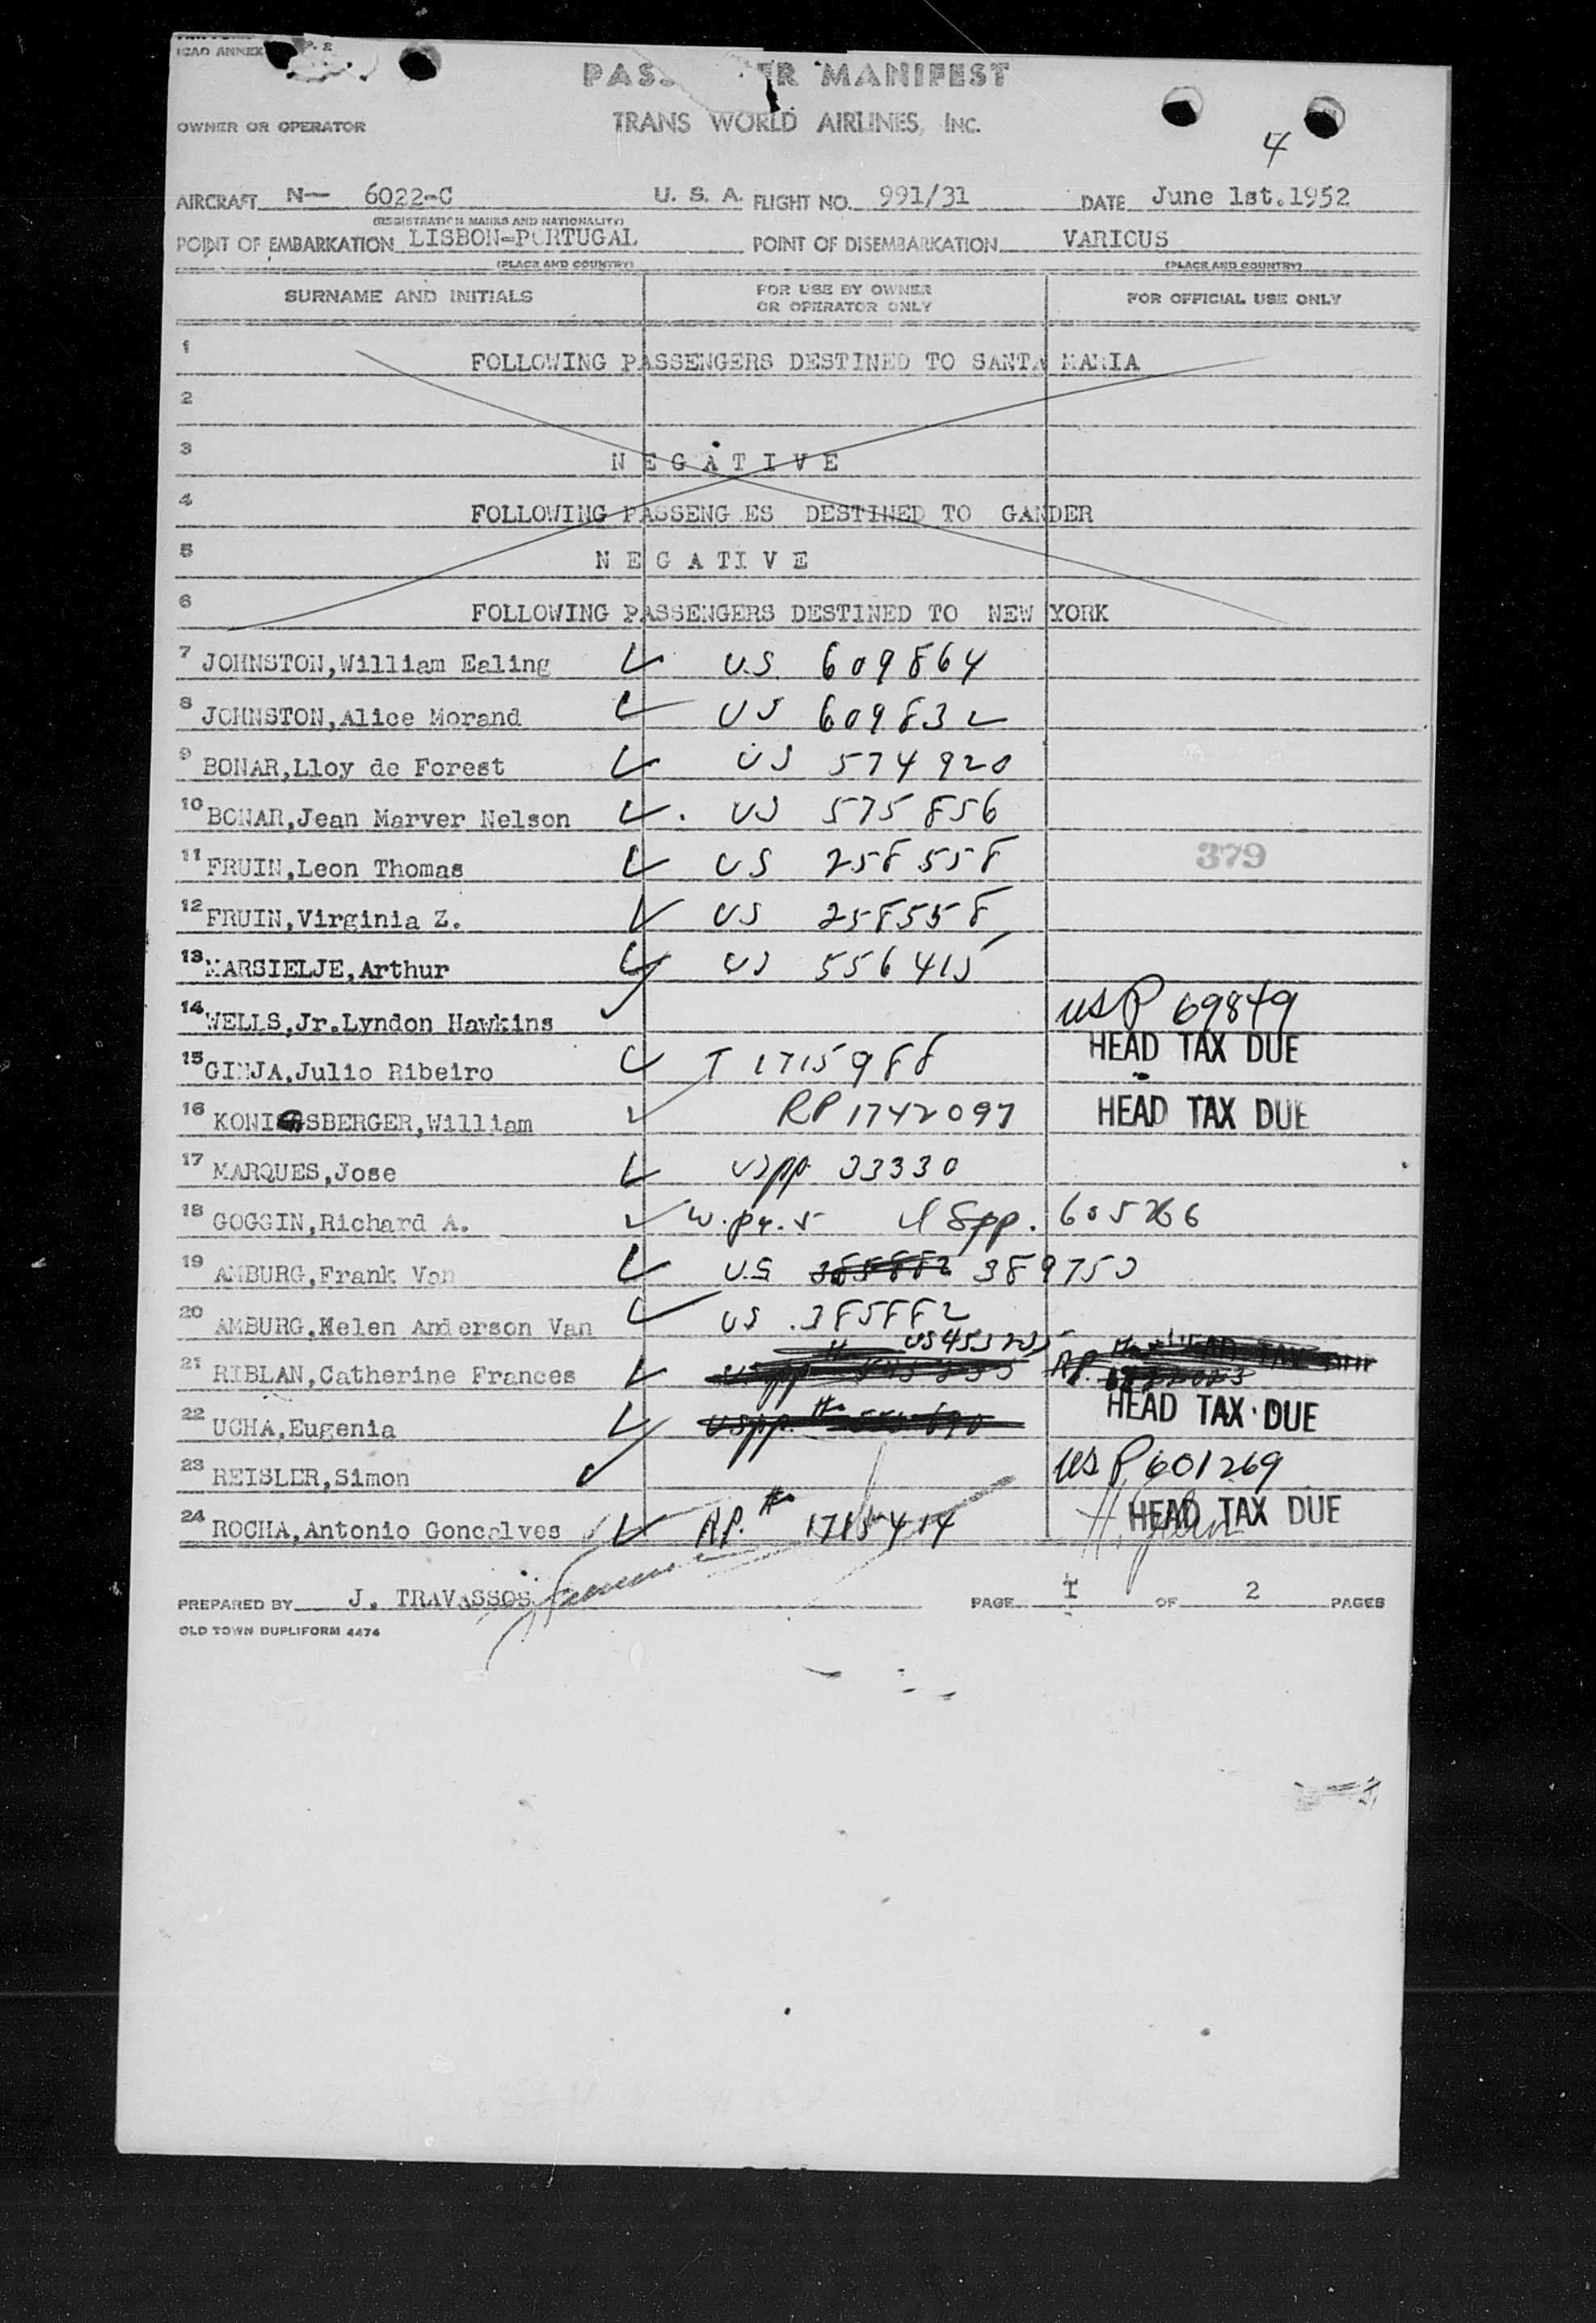 ICAO ANNEX P. 2
PASS ER MANIFEST
OWNER OR OPERATOR TRANS WORLD AIRLINES, INC.
4
AIRCRAFT N— 6022-C U. S. A. FLIGHT NO. 991/31 DATE June 1st.1952
(REGISTRATION MARKS AND NATIONALITY)
POINT OF EMBARKATION LISBON-PORTUGAL POINT OF DISEMBARKATION VARIOUS
(PLACE AND COUNTRY) (PLACE AND COUNTRY)
SURNAME AND INITIALS FOR USE BY OWNER OR OPERATOR ONLY FOR OFFICIAL USE ONLY
1 FOLLOWING PASSENGERS DESTINED TO SANTA MARIA
2
3 N E G A T I V E
4 FOLLOWING PASSENG ES DESTINED TO GANDER
5 N E G A T I V E
6 FOLLOWING PASSENGERS DESTINED TO NEW YORK
7 JOHNSTON,William Ealing U.S. 609864
8 JOHNSTON,Alice Morand US 609832
9 BONAR,Lloy de Forest US 574920
10 BONAR,Jean Marver Nelson US 575856
11 FRUIN,Leon Thomas US 258558 379
12 FRUIN,Virginia Z. US 258558
13 MARSIELJE,Arthur US 556415
14 WELLS,Jr.Lyndon Hawkins US P 69849
15 GINJA,Julio Ribeiro T 1715988 HEAD TAX DUE
16 KONIGSBERGER,William RP 1742097 HEAD TAX DUE
17 MARQUES,Jose USpp 33330
18 GOGGIN,Richard A. USpp. 605766
19 AMBURG,Frank Von U.S 385882 389750
20 AMBURG,Helen Anderson Van US 385882
21 RIBLAN,Catherine Frances RP.
22 UCHA,Eugenia USpp. HEAD TAX DUE
23 REISLER,Simon US P 601269
24 ROCHA,Antonio Goncalves RP. # 1715414 HEAD TAX DUE
PREPARED BY J. TRAVASSOS PAGE I OF 2 PAGES
OLD TOWN DUPLIFORM 4474